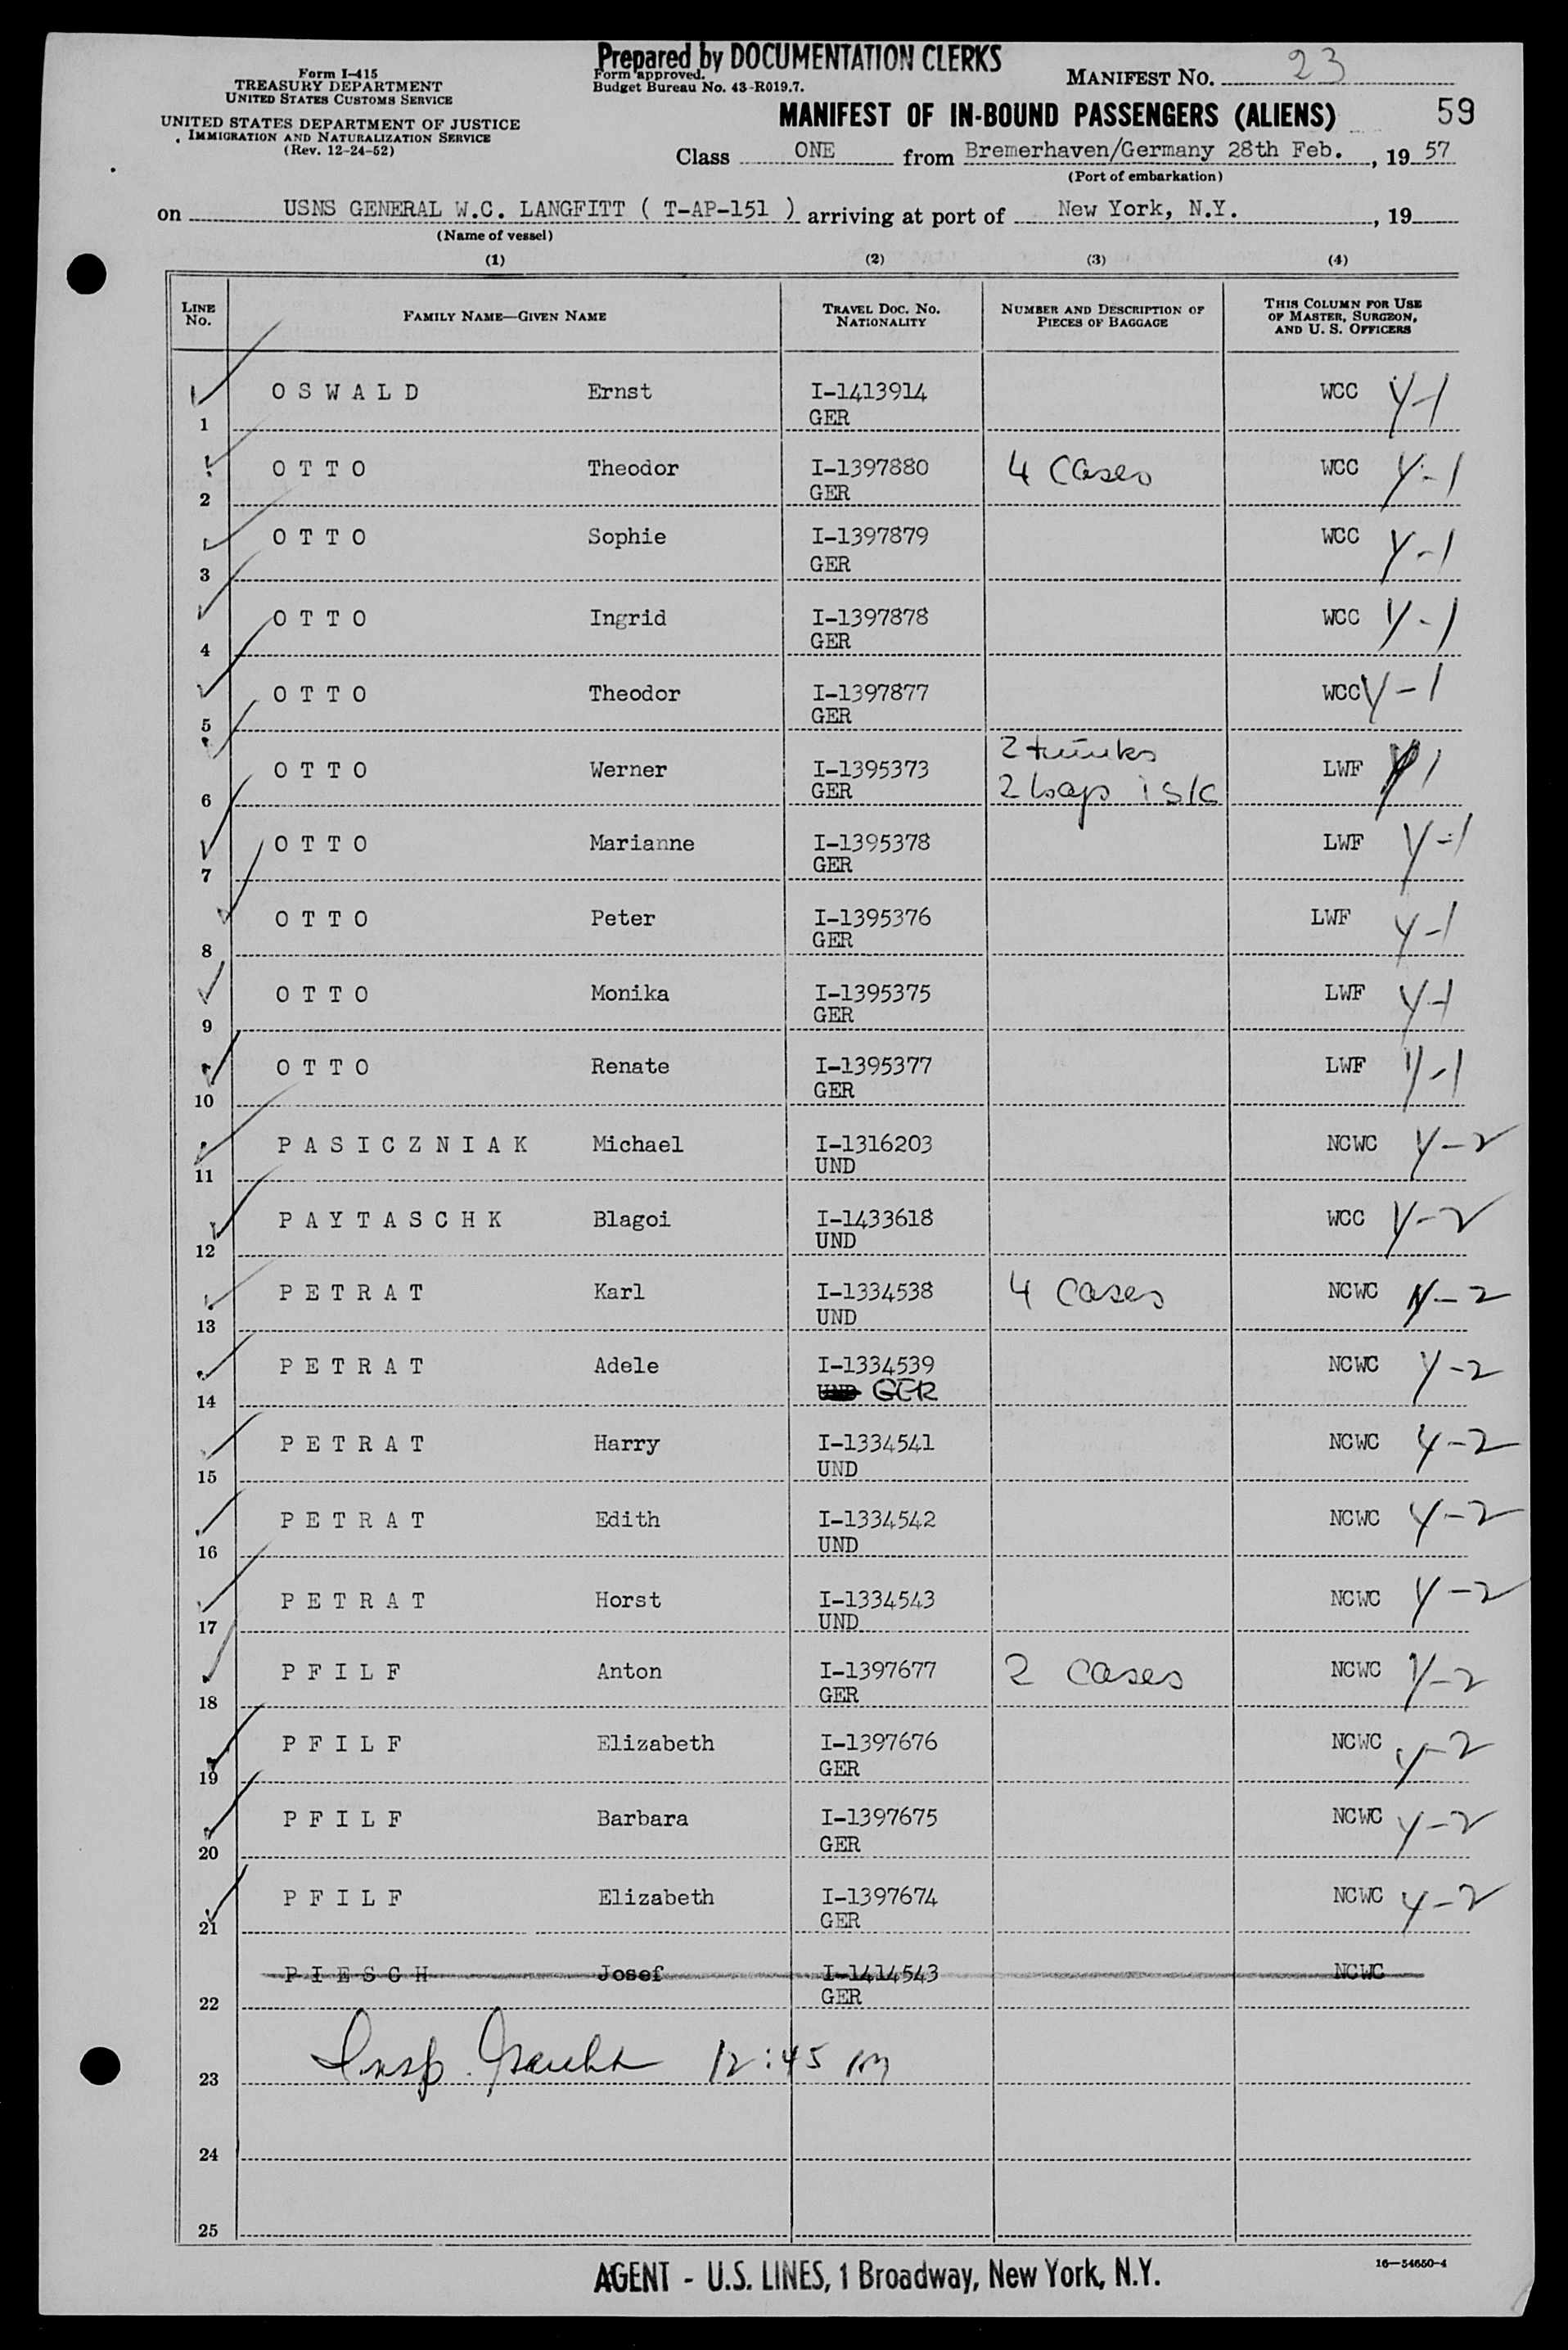 Prepared by DOCUMENTATION CLERKS
Form I-415
TREASURY DEPARTMENT
UNITED STATES CUSTOMS SERVICE
UNITED STATES DEPARTMENT OF JUSTICE
IMMIGRATION AND NATURALIZATION SERVICE
(Rev. 12-24-52)
Form approved.
Budget Bureau No. 43-R019.7.
MANIFEST NO. 23
MANIFEST OF IN-BOUND PASSENGERS (ALIENS) 59
Class ONE from Bremerhaven/Germany 28th Feb., 19 57
(Port of embarkation)
on USNS GENERAL W.C. LANGFITT ( T-AP-151 ) arriving at port of New York, N.Y., 19
(Name of vessel)
(1) (2) (3) (4)
LINE NO. FAMILY NAME—GIVEN NAME TRAVEL DOC. NO. NATIONALITY NUMBER AND DESCRIPTION OF PIECES OF BAGGAGE THIS COLUMN FOR USE OF MASTER, SURGEON, AND U. S. OFFICERS
1 OSWALD Ernst I-1413914 GER WCC Y-1
2 OTTO Theodor I-1397880 GER 4 Cases WCC Y-1
3 OTTO Sophie I-1397879 GER WCC Y-1
4 OTTO Ingrid I-1397878 GER WCC Y-1
5 OTTO Theodor I-1397877 GER WCC Y-1
6 OTTO Werner I-1395373 GER 2 trunks 2 bags 1 s/c LWF Y 1
7 OTTO Marianne I-1395378 GER LWF Y-1
8 OTTO Peter I-1395376 GER LWF Y-1
9 OTTO Monika I-1395375 GER LWF Y-1
10 OTTO Renate I-1395377 GER LWF Y-1
11 PASICZNIAK Michael I-1316203 UND NCWC Y-2
12 PAYTASCHK Blagoi I-1433618 UND WCC Y-2
13 PETRAT Karl I-1334538 UND 4 Cases NCWC Y-2
14 PETRAT Adele I-1334539 UND GER NCWC Y-2
15 PETRAT Harry I-1334541 UND NCWC Y-2
16 PETRAT Edith I-1334542 UND NCWC Y-2
17 PETRAT Horst I-1334543 UND NCWC Y-2
18 PFILF Anton I-1397677 GER 2 Cases NCWC Y-2
19 PFILF Elizabeth I-1397676 GER NCWC Y-2
20 PFILF Barbara I-1397675 GER NCWC Y-2
21 PFILF Elizabeth I-1397674 GER NCWC Y-2
22 PIESCH Josef I-1414543 GER NCWC
23 Insp. 12:45 PM
24
25
AGENT - U.S. LINES, 1 Broadway, New York, N.Y.
16—54650-4